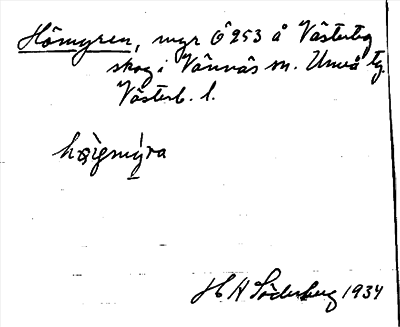 Hömyren, myr Ö 253 å Västerby
skog i Vännäs sn. Umeå tg.
Västerb. l.
hœ̀igmýra
H A Söderberg 1934